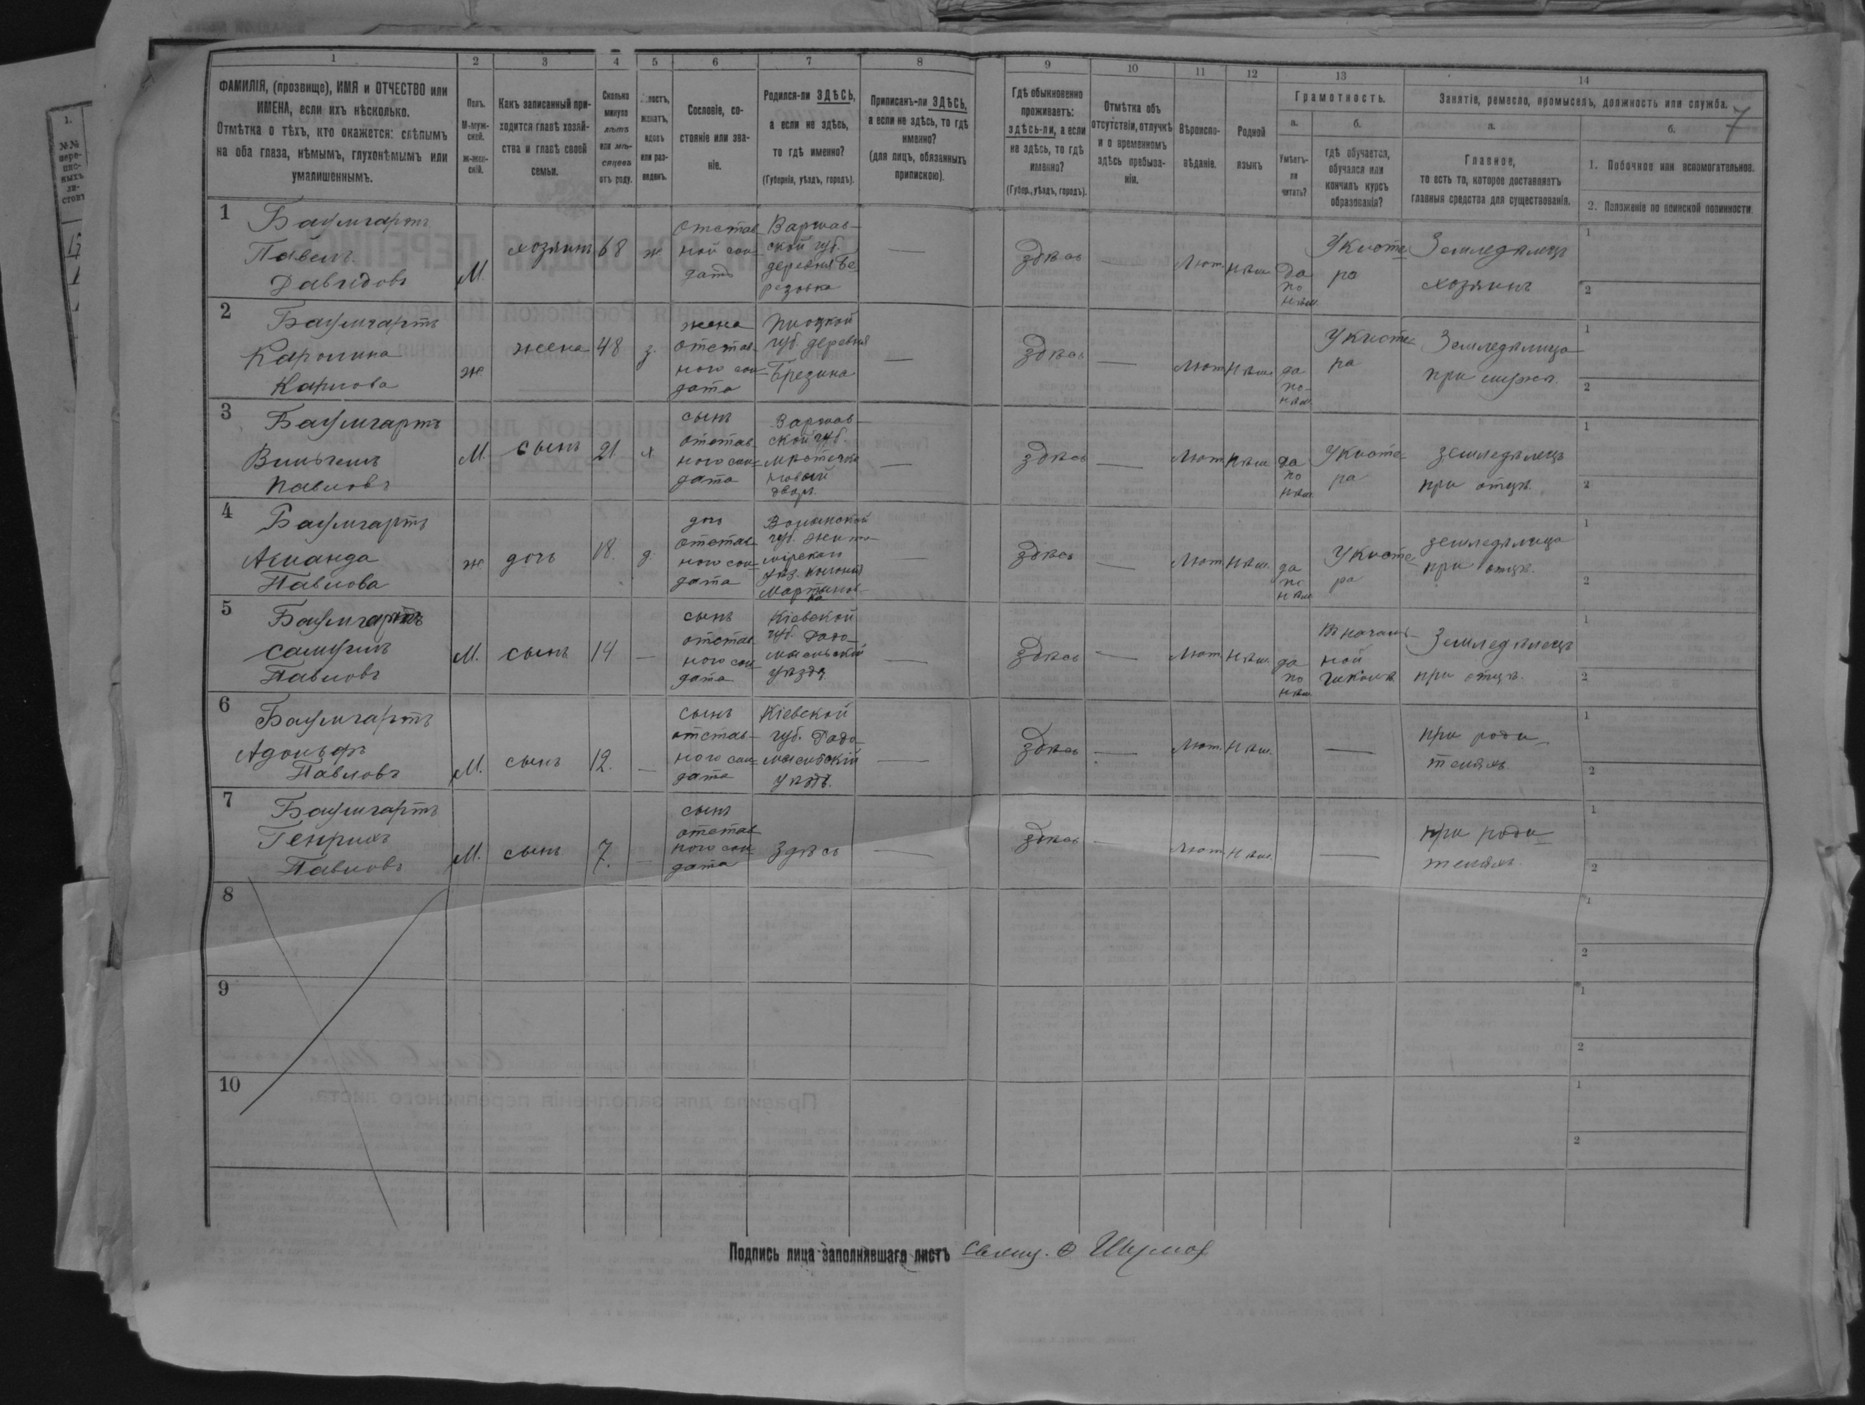 1
2
3
4
5
6
7
8
9
10
11
12
13
14
7
ФАМИЛІЯ, (прозвище), ИМЯ и ОТЧЕСТВО или
ИМЕНА, если ихъ нѣсколько.
Отмѣтка о тѣхъ, кто окажется: слѣпымъ
на оба глаза, нѣмымъ, глухонѣмымъ или
умалишеннымъ.
Полъ.
М-муж-
ской.
ж-жен-
скій.
Какъ записанный при-
ходится главѣ хозяй-
ства и главѣ своей
семьи.
Сколько
минуло
лѣтъ
или мѣ-
сяцевъ
отъ роду.
Холостъ,
женатъ,
вдовъ
или раз-
веденъ.
Сословіе, со-
стояніе или зва-
ніе.
Родился-ли ЗДѢСЬ,
а если не здѣсь,
то гдѣ именно?
(Губернія, уѣздъ, городъ).
Приписанъ-ли ЗДѢСЬ,
а если не здѣсь, то гдѣ
именно?
(для лицъ, обязанныхъ
припискою).
Гдѣ обыкновенно
проживаетъ:
здѣсь-ли, а если
не здѣсь, то гдѣ
именно?
(Губер., уѣздъ, городъ).
Отмѣтка объ
отсутствіи, отлучкѣ
и о временномъ
здѣсь пребыва-
ніи.
Вѣроиспо-
вѣданіе.
Родной
языкъ
Грамотность.
а.
Умѣетъ-
ли
читать?
б.
гдѣ обучается,
обучался или
кончилъ курсъ
образованія?
Занятіе, ремесло, промыселъ, должность или служба.
а.
Главное,
то есть то, которое доставляетъ
главныя средства для существованія.
б.
1. Побочное или вспомогательное.
2. Положеніе по воинской повинности
1
Баумгартъ
Павелъ
Давидовъ
М.
хозяинъ
68
ж
отстав
ной сол-
датъ
Варшав-
ской губ.
деревня Бе
резовка
здѣсь
Лют.
нѣм.
да
по
нѣм.
У Кисте
ра
Земледѣлецъ
хозяинъ
1
2
2
Баумгартъ
Каролина
Карлова
ж.
жена
48
з.
жена
отстав-
ного сол-
дата
Плоцкой
губ. деревня
Брезина
здѣсь
Лют.
нѣм.
да
по-
нѣм.
У Кисте
ра
Земледѣлица
при мужѣ.
1
2
3
Баумгартъ
Вильгелъ
Павловъ
М.
сынъ
21
х
сынъ
отстав-
ного сол-
дата
Варшав-
ской губ.
мѣстечко
Новый
дворъ.
здѣсь
Лют.
нѣм.
да
по
нѣм.
У Кисте
ра
земледѣлецъ
при отцѣ.
1
2
4
Баумгартъ
Аманда
Павлова
ж
дочь
18.
д.
дочь
отстав-
ного сол-
дата
Волынской
губ. Жито-
мірскаго
уѣз. колонія
Мартинов-
ка
здѣсь
Лют.
нѣм.
да
по
нѣм
У Кисте
ра
земледѣлица
при отцѣ.
1
2
5
Баумгартъ
Самуилъ
Павловъ
М.
сынъ
14
сынъ
отстав
ного сол
дата
Кіевской
губ. Радо-
мысльскій
уѣздъ
здѣсь
Лют.
нѣм.
да
по
нѣм.
Въ началь-
ной
школѣ
Земледѣлецъ
при отцѣ.
1
2
6
Баумгартъ
Адольфъ
Павловъ
М.
сынъ
12.
сынъ
отстав-
ного сол-
дата
Кіевской
губ. Радо-
мысльскій
уѣздъ.
здѣсь
Лют.
нѣм.
при роди-
теляхъ.
1
2
7
Баумгартъ
Генрихъ
Павловъ
М.
сынъ
7.
сынъ
отстав
ного сол-
дата
здѣсь
здѣсь
Лют.
нѣм.
при роди-
теляхъ.
1
2
8
1
2
9
1
2
10
1
2
Подпись лица заполнявшаго листъ